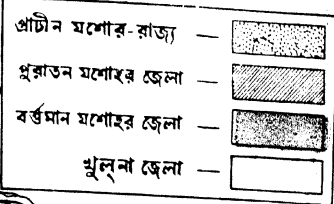 প্রাচীন যশোর-রাজ্য —
পুরাতন যশোহর জেলা —
বর্ত্তমান যশোহর জেলা —
খুলনা জেলা —